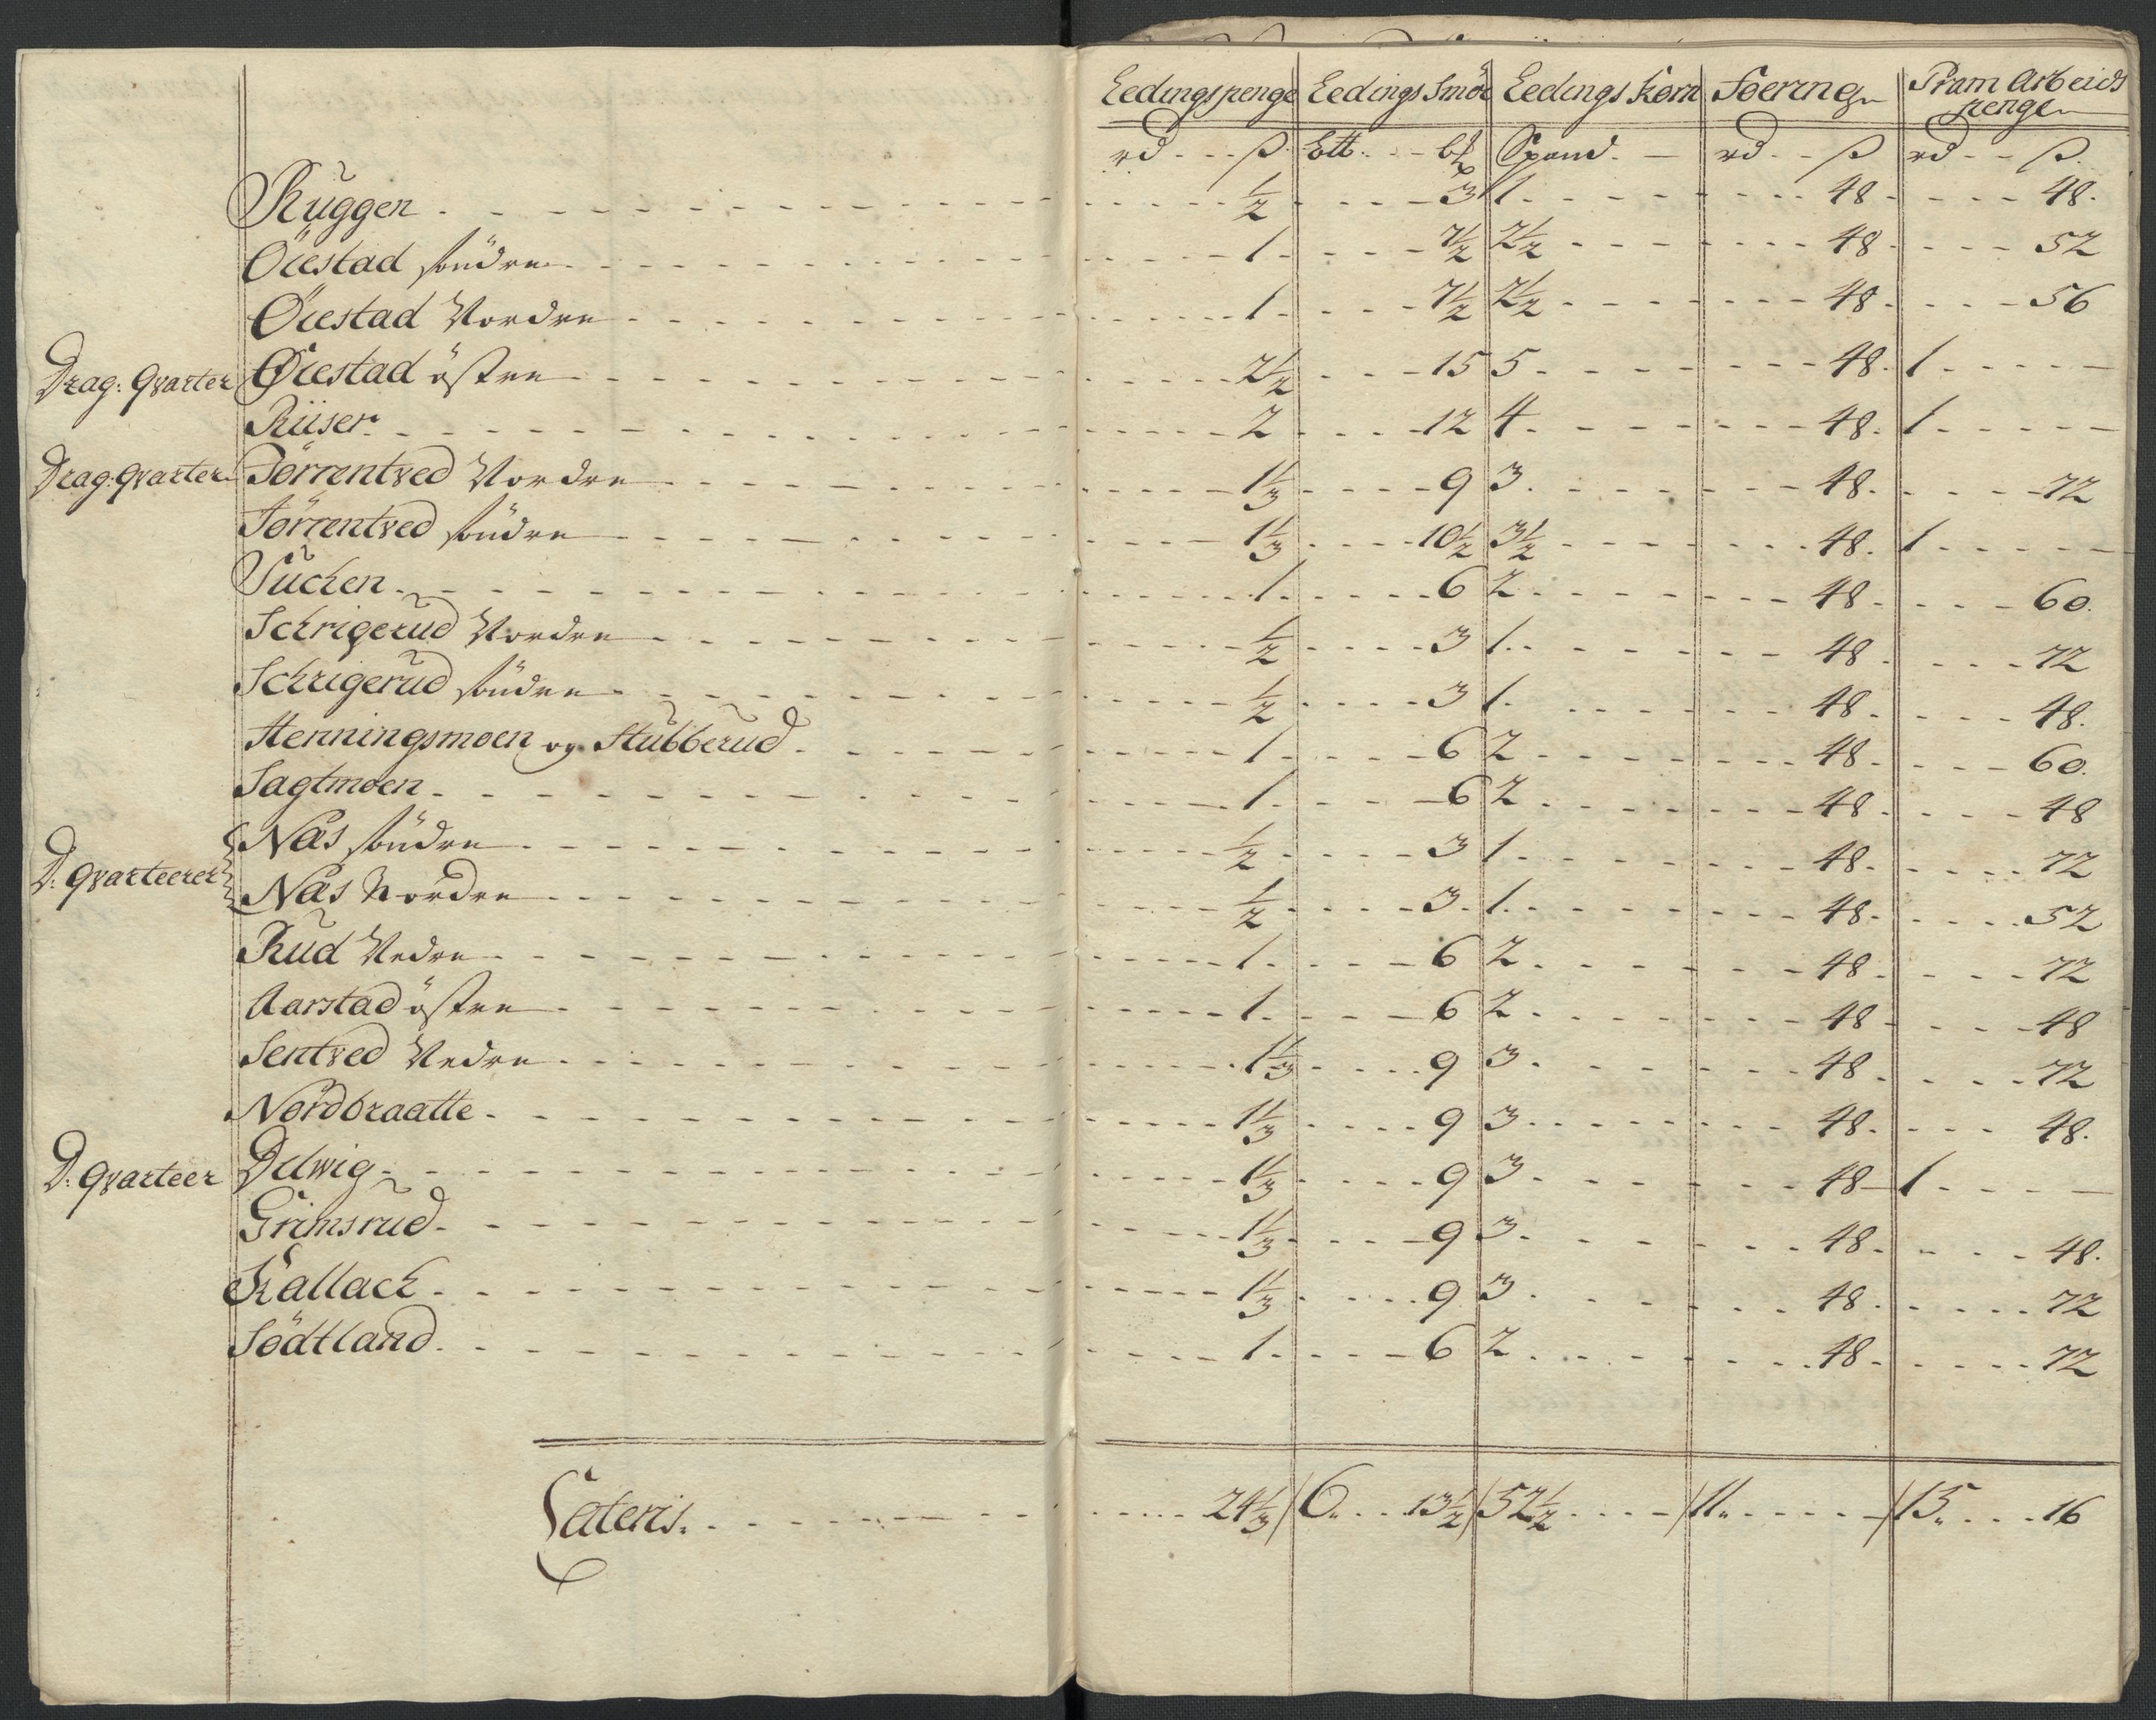 Leedingspenge Leedings Smör Leedings Korn Foering Pram Arbeids penge
rd ß Lett. b Spand. rd ß rd ß.
Ruggen 1/2 3 1 48 48.
Öiestad söndre 1 7 1/2 2 1/2 48 52
Öiestad Nordre 1 7 1/2 2 1/2 48 56
Drag: Qvarter Öiestad östre 2 1/2 15 5 48 1
Riiser 2 12 4 48. 1
Drag: Qvarter Törrentved Nordre 1 1/3 9 3 48. 72
Törrentved söndre 1 1/3 10 1/2 3 1/2 48. 1
Suchen 1 6 2 48 60.
Schrigerud Nordre 1/2 3 1 48 72
Schrigerud söndre 1/2 3 1 48 48.
Henningsmoen og Stubberud 1 6 2 48 60.
Sagtmoen 1 6 2 48 48
D: Qvarteerer Næs söndre 1/2 3 1 48 72
Næs Nordre 1/2 3 1 48 52
Rud Nedre 1 6 2 48 72
Aarstad östre 1 6 2 48 48
Sentved Nedre 1 1/3 9 3 48 72
Nordbraatte 1 1/3 9 3 48 48.
D: Qvarteer Delwig 1 1/3 9 3 48 1
Grimsrud 1 1/3 9 3 48 48.
Kallack 1 1/3 9 3 48 72
Södtland 1 6 2 48 72
Lateris. 24 1/3 / 6. 13 1/2 / 52 1/2 / 11. / 15. 16